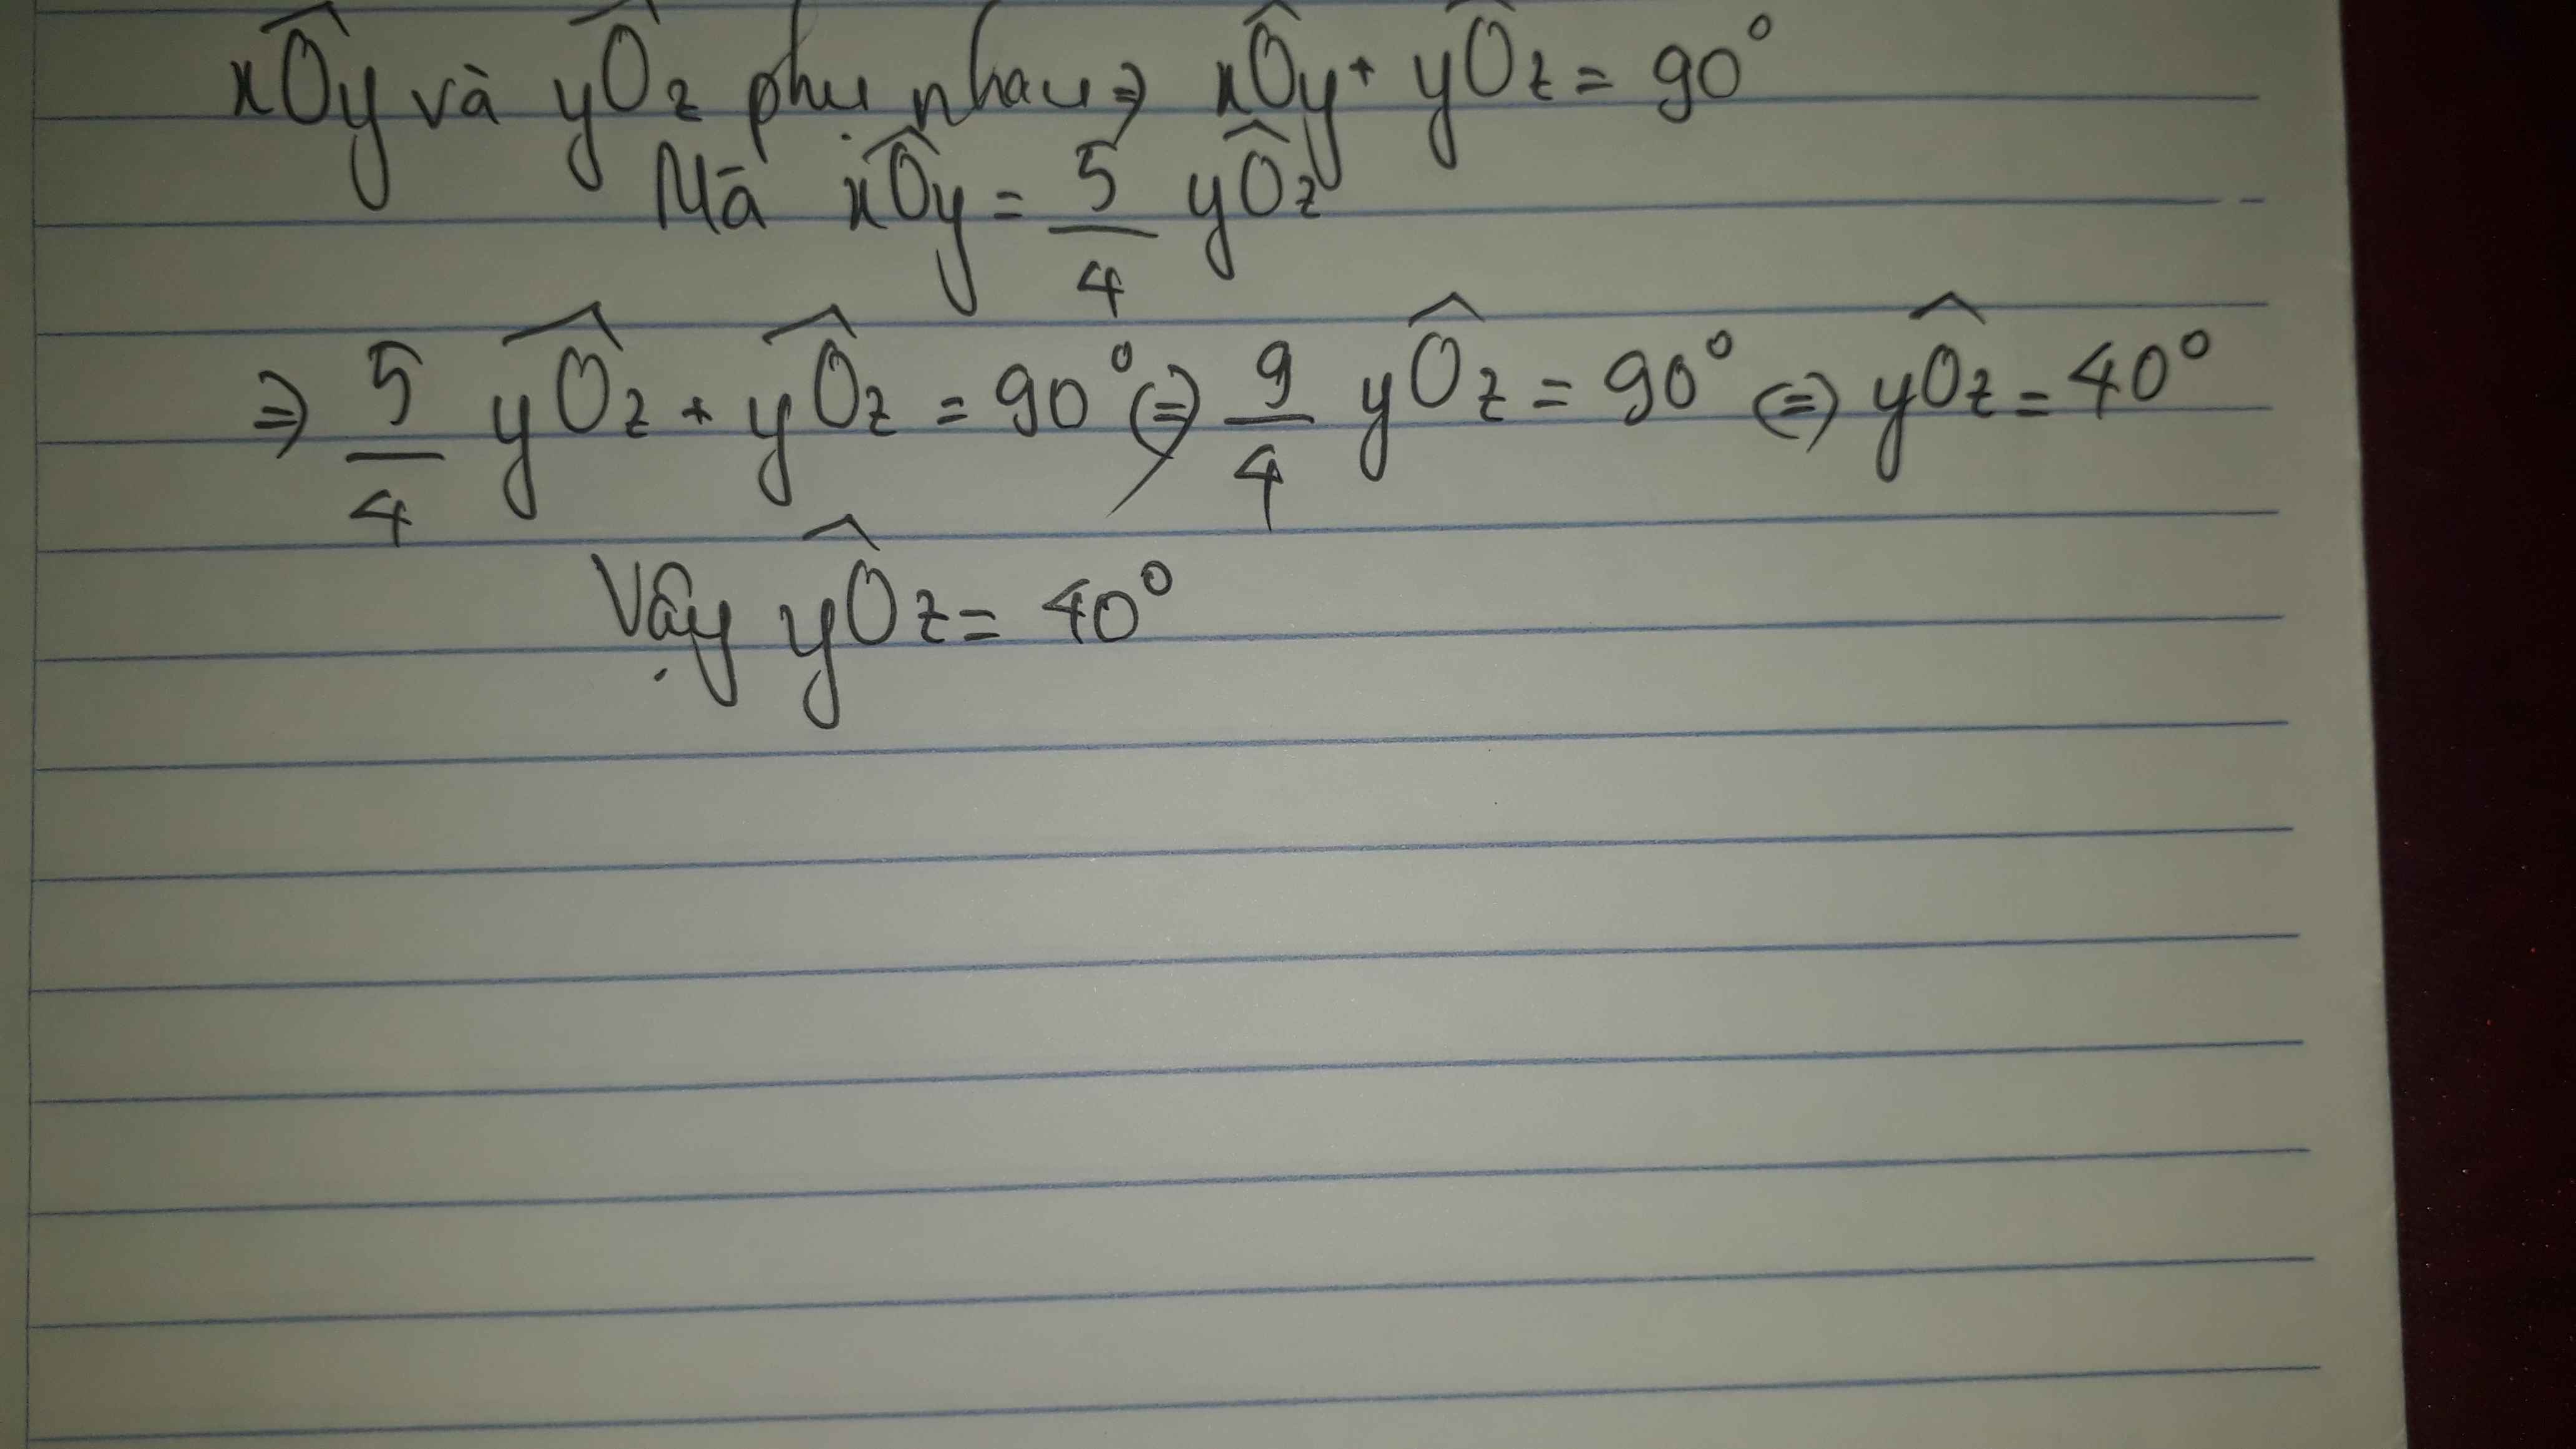 xÔy và yÔz phụ nhau ⇒ xÔy + yÔz = 90°
Mà xÔy = 5/4 yÔz
⇒ 5/4 yÔz + yÔz = 90° ⇔ 9/4 yÔz = 90° ⇔ yÔz = 40°
Vậy yÔz = 40°